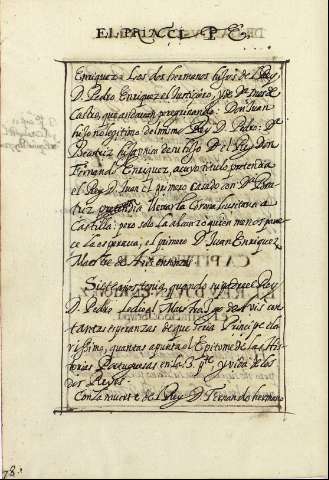 EL PRINCIPE,
Enriquez: Los dos hermanos hijos de el Rey
D. Pedro Enriquez el Justiçiero, y de Dª Ines de
Castro, que andavan peregrinando: Don Juan
hijo no legitimo del mismo Rey D. Pedro: Dª
Beatriz hija unica de su hijo el Rey Don
Fernando Enriquez, acuyo titulo pretendia
el Rey D. Juan el primero casado con Dª Bea
triz llevar la Corona Lusitana a
Castilla: pero solo la alcanzo quien menos pare
ce la esperava, el primero D. Juan Enriquez
Maestre de Avis entonces
Siete años tenia, quando su padre el Rey
D. Pedro le eligio Maestre de Avis con
tantas esperanzas de que seria Principe cla
rissimo, quantas apunta el Epitome de las His
torias Portuguesas en la 3. pte y vida de los
dos Reyes
Con la muerte de el Rey D. Fernando hermano
78.